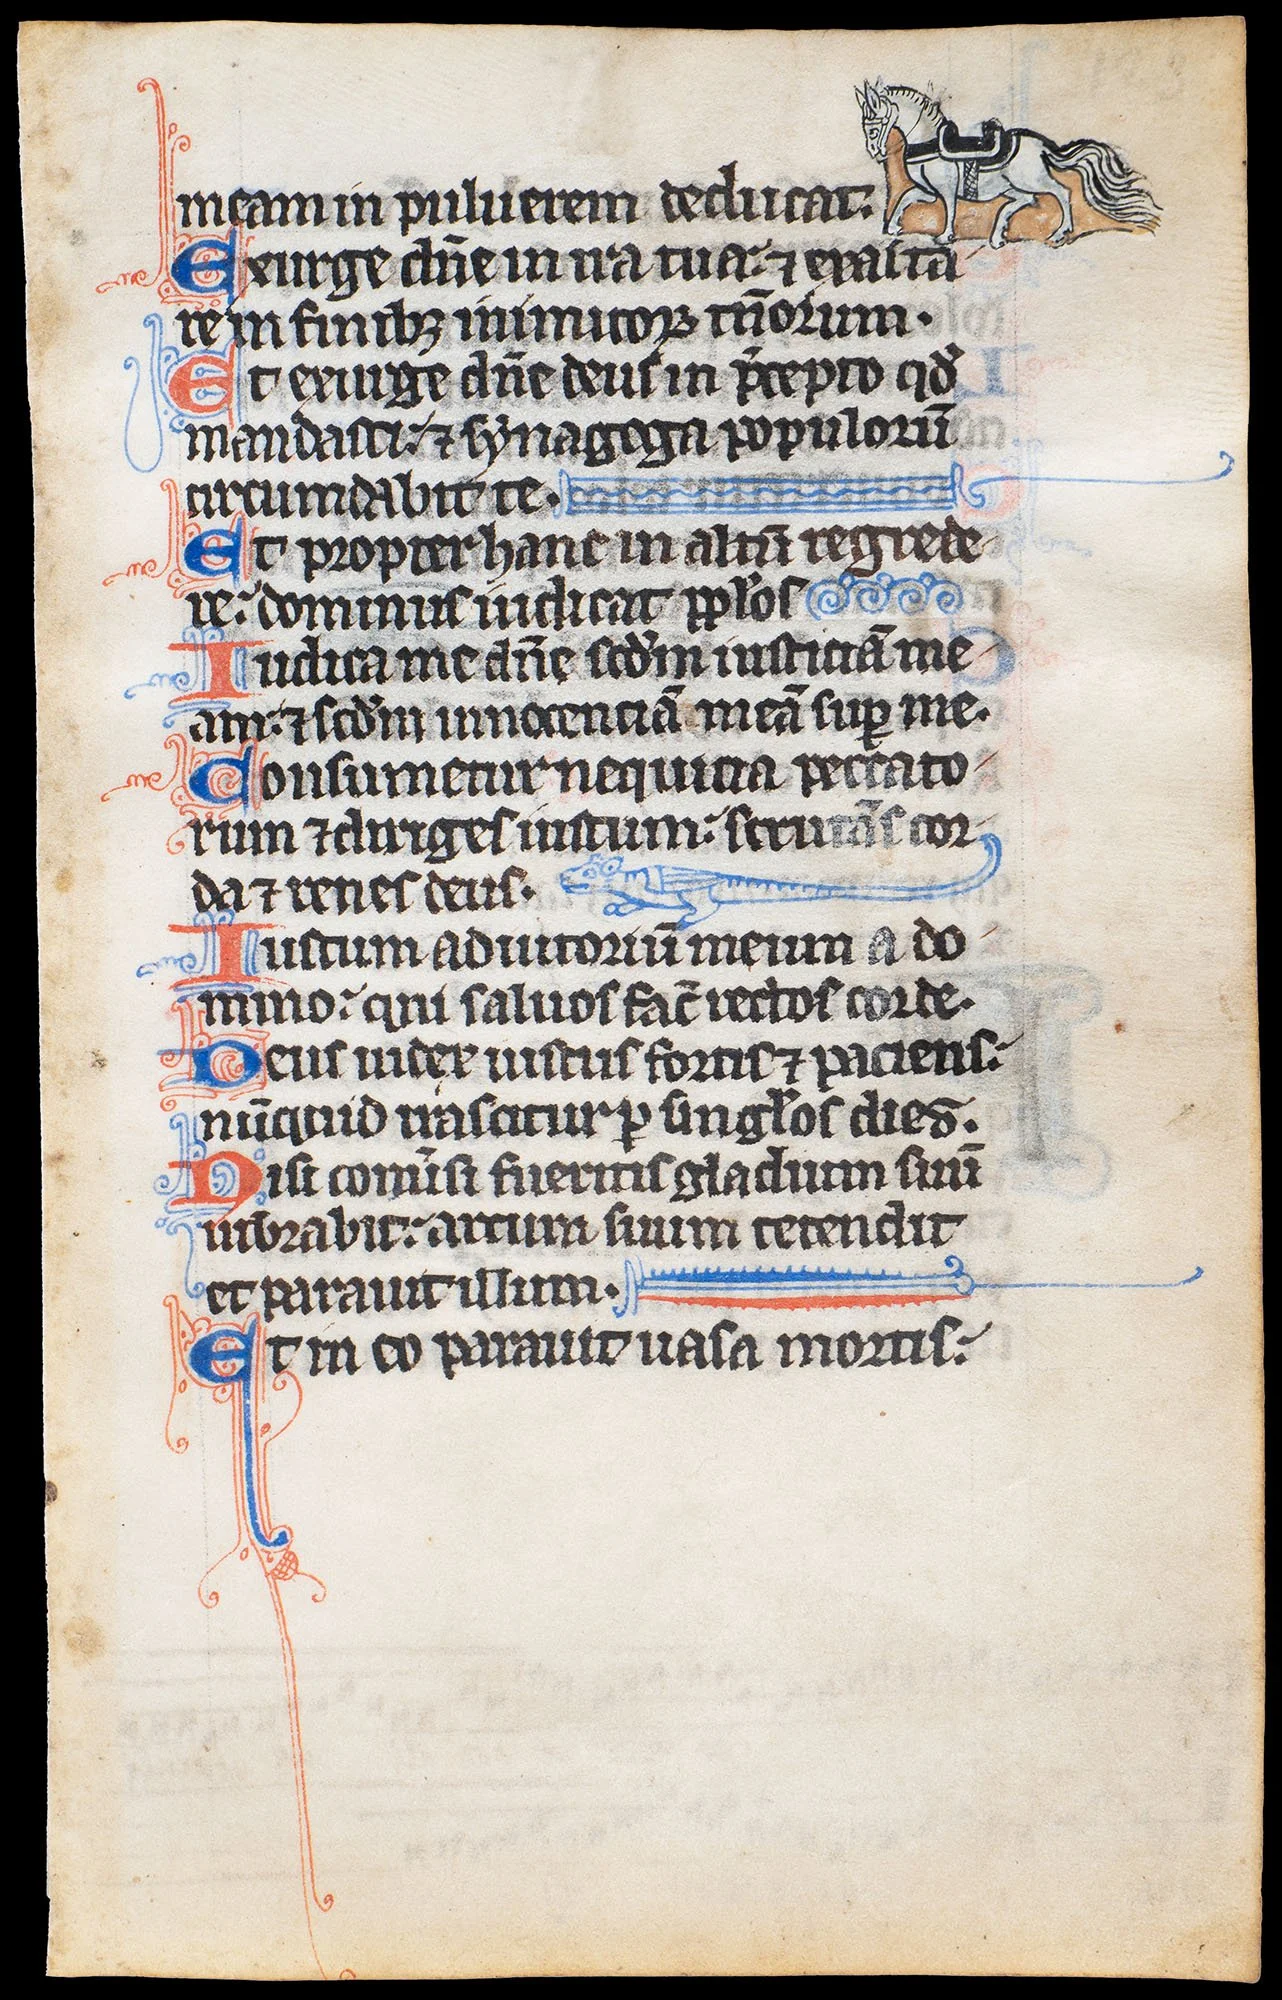 meam in puluerem deducat.
Exurge dn̄e in ira tua: ⁊ exalta
re in finibꝫ inimicoꝝ tuorum.
Et exurge dn̄e deus in p̄cepto qđ
mandasti: ⁊ synagoga populorū
circumdabit te.
Et propter hanc in altū regrede
re: dominus iudicat pp̄los
Iudica me dn̄e scđm iusticiā me
am: ⁊ scđm innocenciā meā suꝑ me.
Consumetur nequicia peccato
rum ⁊ diriges iustum: scrutās cor
da ⁊ renes deus.
Iustum adiutoriū meum a do
mino: qui saluos fac̄ rectos corde.
Deus iudex iustus fortis ⁊ paciens:
nūquid irascitur ꝑ singl̄os dies.
Nisi conūsi fueritis gladium suū
uibrabit: arcum suum tetendit
et parauit illum.
Et in eo parauit uasa mortis: